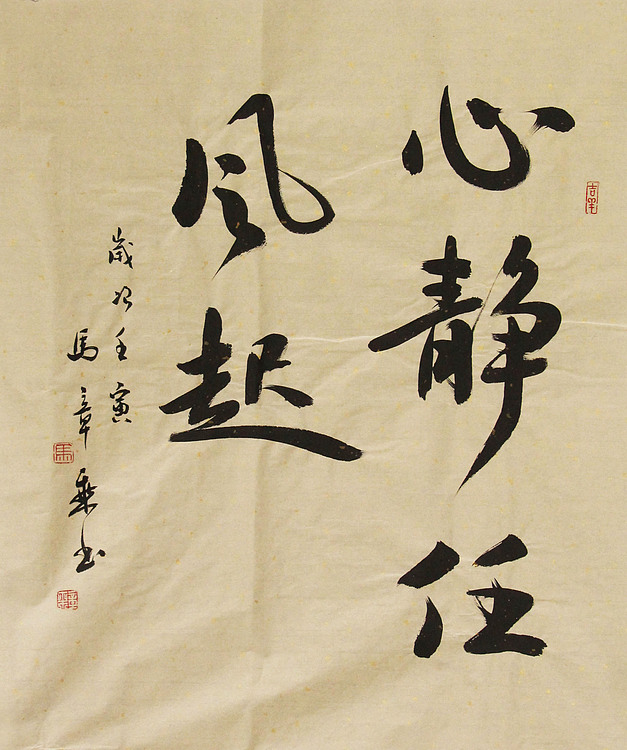 心静任
风起
岁次壬寅
马章乘书